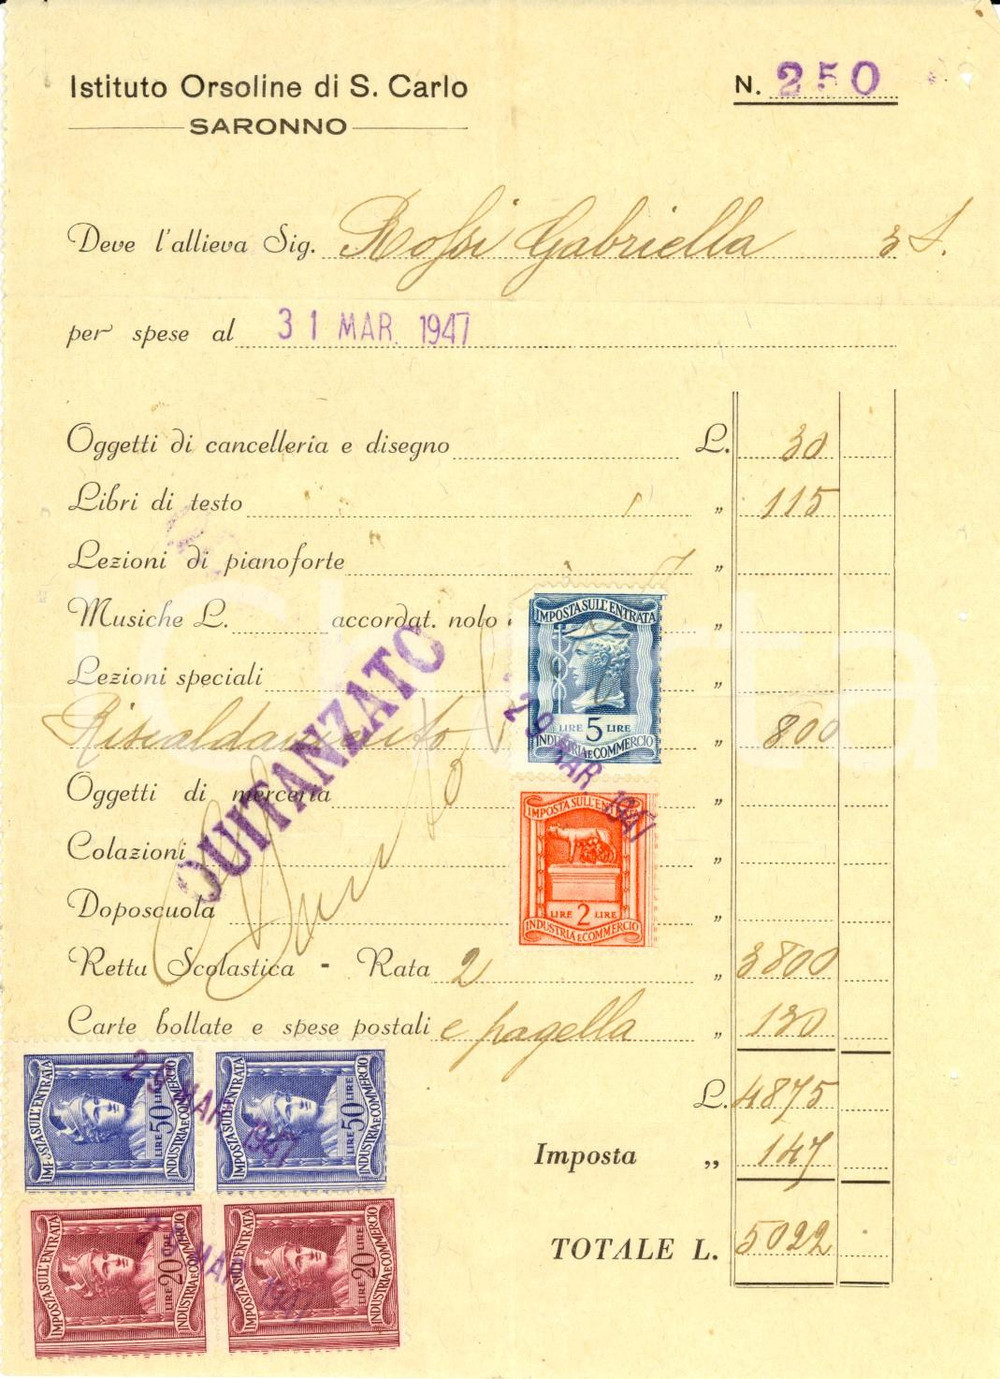 Istituto Orsoline di S. Carlo
SARONNO
N. 250
Deve l'allieva Sig. Rossi Gabriella 3 S.
per spese al 31 MAR. 1947
Oggetti di cancelleria e disegno L. 30
Libri di testo „ 115
Lezioni di pianoforte „
Musiche L. accordat. nolo „
Lezioni speciali „
Riscaldamento „ 800
Oggetti di merceria „
Colazioni „
Doposcuola „
Retta Scolastica - Rata 2 „ 3800
Carte bollate e spese postali e pagella „ 130
L. 4875
Imposta „ 147
TOTALE L. 5022
QUITANZATO
IMPOSTA SULL'ENTRATA
LIRE 5 LIRE
INDUSTRIA E COMMERCIO
29 MAR. 1947
IMPOSTA SULL'ENTRATA
LIRE 2 LIRE
INDUSTRIA E COMMERCIO
IMPOSTA SULL'ENTRATA
LIRE 50 LIRE
INDUSTRIA E COMMERCIO
IMPOSTA SULL'ENTRATA
LIRE 50 LIRE
INDUSTRIA E COMMERCIO
29 MAR. 1947
IMPOSTA SULL'ENTRATA
LIRE 20 LIRE
INDUSTRIA E COMMERCIO
IMPOSTA SULL'ENTRATA
LIRE 20 LIRE
INDUSTRIA E COMMERCIO
29 MAR. 1947